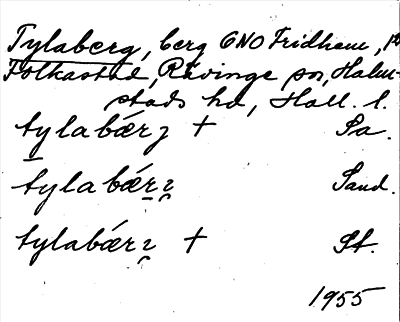 Tylaberg, berg ONO Fridhem, 1²
Folkastad, Rävinge sn, Halm-
stads hd, Hall. l.
tylabǽrʒ + Sa.
tylabǽrʒ Sand.
tylabǽrʒ + St.
1955